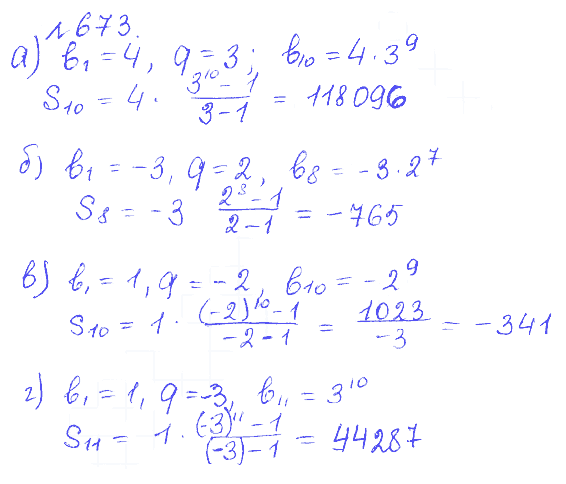 №673.
а) b₁ = 4, q = 3; b₁₀ = 4·3⁹
S₁₀ = 4 · (3¹⁰ - 1)/(3 - 1) = 118096
б) b₁ = -3, q = 2, b₈ = -3·2⁷
S₈ = -3 (2⁸ - 1)/(2 - 1) = -765
в) b₁ = 1, q = -2, b₁₀ = -2⁹
S₁₀ = 1 · ((-2)¹⁰ - 1)/(-2 - 1) = 1023/(-3) = -341
г) b₁ = 1, q = -3, b₁₁ = 3¹⁰
S₁₁ = 1 · ((-3)¹¹ - 1)/((-3) - 1) = 44287